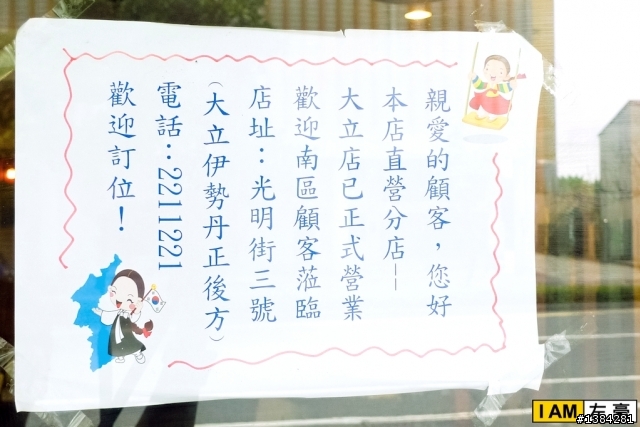 親愛的顧客，您好
本店直營分店——
大立店已正式營業
歡迎南區顧客蒞臨
店址：光明街三號
（大立伊勢丹正後方）
電話：2211221
歡迎訂位！
I AM 左豪
#1384281